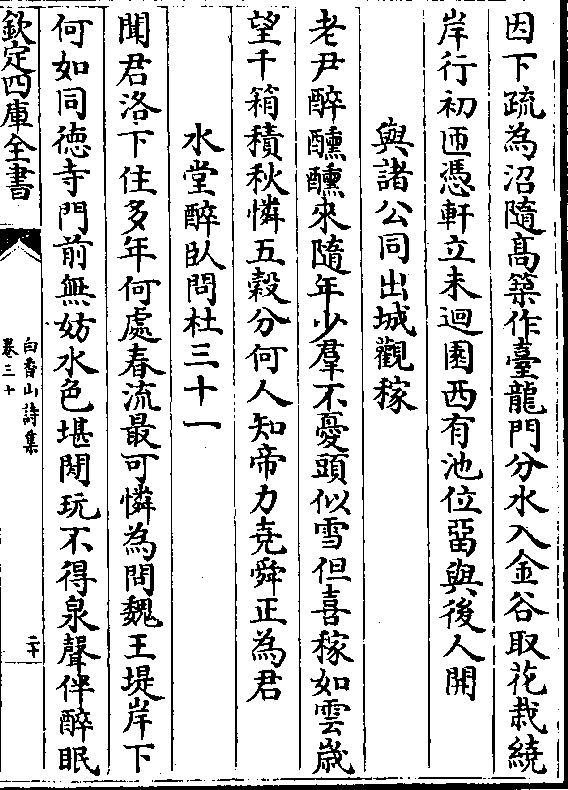 因下疏為沼隨髙築作臺龍門分水入金谷取花栽繞
岸行初匝憑軒立未迴園西有池位留與後人開
與諸公同出城觀稼
老尹醉醺醺來隨年少羣不憂頭似雪但喜稼如雲歳
望千箱積秋憐五穀分何人知帝力堯舜正為君
水堂醉臥問杜三十一
聞君洛下住多年何處春流最可憐為問魏王堤岸下
何如同徳寺門前無妨水色堪閑玩不得泉聲伴醉眠
欽定四庫全書
白香山詩集
卷三十
二十